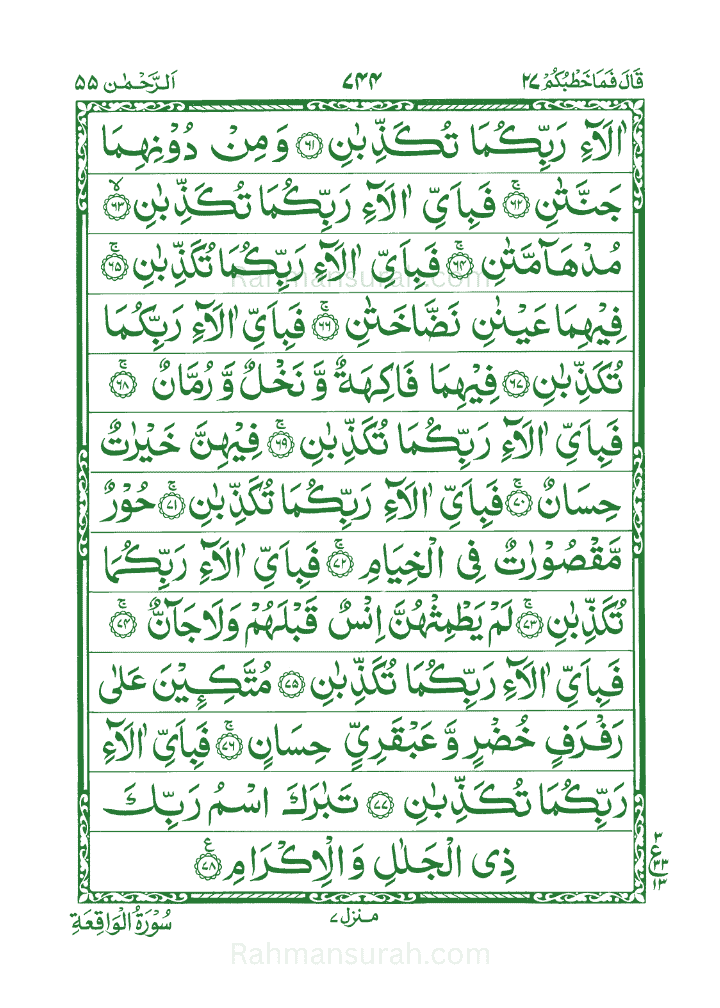 قَالَ فَمَا خَطْبُكُمْ ٢٧
٧٤٤
اَلرَّحْمٰن ٥٥
اٰلَآءِ رَبِّكُمَا تُكَذِّبٰنِ ۝٦١ وَ مِنْ دُوْنِهِمَا
جَنَّتٰنِ ۝٦٢ۚ فَبِاَيِّ اٰلَآءِ رَبِّكُمَا تُكَذِّبٰنِ ۝٦٣ۙ
مُدْهَآمَّتٰنِ ۝٦٤ۚ فَبِاَيِّ اٰلَآءِ رَبِّكُمَا تُكَذِّبٰنِ ۝٦٥ۚ
فِيْهِمَا عَيْنٰنِ نَضَّاخَتٰنِ ۝٦٦ۚ فَبِاَيِّ اٰلَآءِ رَبِّكُمَا
تُكَذِّبٰنِ ۝٦٧ فِيْهِمَا فَاكِهَةٌ وَّ نَخْلٌ وَّ رُمَّانٌ ۝٦٨ۚ
فَبِاَيِّ اٰلَآءِ رَبِّكُمَا تُكَذِّبٰنِ ۝٦٩ۚ فِيْهِنَّ خَيْرٰتٌ
حِسَانٌ ۝٧٠ۚ فَبِاَيِّ اٰلَآءِ رَبِّكُمَا تُكَذِّبٰنِ ۝٧١ۚ حُوْرٌ
مَّقْصُوْرٰتٌ فِی الْخِيَامِ ۝٧٢ۚ فَبِاَيِّ اٰلَآءِ رَبِّكُمَا
تُكَذِّبٰنِ ۝٧٣ۚ لَمْ يَطْمِثْهُنَّ اِنْسٌ قَبْلَهُمْ وَلَا جَآنٌّ ۝٧٤ۚ
فَبِاَيِّ اٰلَآءِ رَبِّكُمَا تُكَذِّبٰنِ ۝٧٥ مُتَّكِـِٕيْنَ عَلٰی
رَفْرَفٍ خُضْرٍ وَّ عَبْقَرِيٍّ حِسَانٍ ۝٧٦ۚ فَبِاَيِّ اٰلَآءِ
رَبِّكُمَا تُكَذِّبٰنِ ۝٧٧ تَبٰرَكَ اسْمُ رَبِّكَ
ذِی الْجَلٰلِ وَ الْاِكْرَامِ ۝٧٨ع
٣
ع
٣٣
١٣
منزل ٧
سُوْرَةُ الْوَاقِعَةِ
Rahmansurah.com
Rahmansurah.com